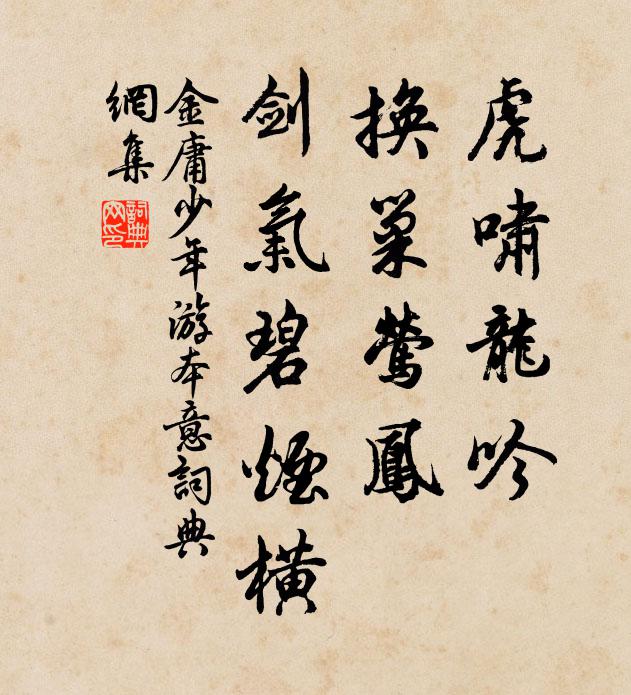 虎嘯龍吟
換巢鸞鳳
劍氣碧煙橫
金庸少年游本意詞典
網集
詞典
网印